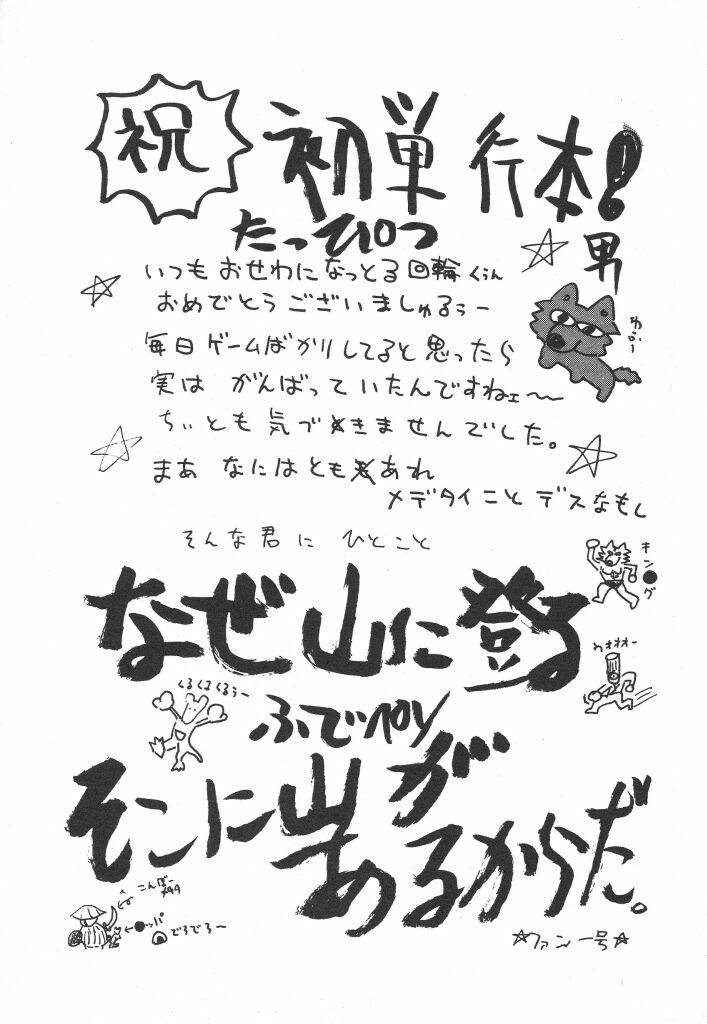 祝
初単行本!
たっぴつ
男
いつもおせわになっとる回輪くぅん
おめでとうございましゅるぅー
毎日ゲームばかりしてると思ったら
実は がんばっていたんですねェ〜
ちぃとも気づきませんでした。
まあ なにはともあれ
メデタイこと デスなもし
そんな君に ひとこと
なぜ山に登る
キン●グ
わオオオー
くるくるくるぅー
ふでペン
そこに山が
あるからだ。
こんぼー
●ッパ
でろでろー
☆ファン一号☆